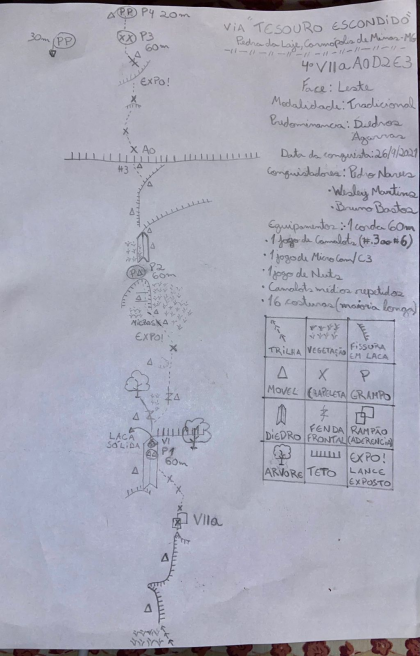 PP P4 20m
30m PP
XX P3
60m
EXPO!
A0
#3
P2
60m
MICROS
EXPO!
LACA
SÓLIDA
VI
P1
60m
VIIa
VIA "TESOURO ESCONDIDO"
Pedra da Laje, Carmópolis de Minas-MG
4º VIIa A0 D2 E3
Face: Leste
Modalidade: Tradicional
Predominância: Diedros
Agarras
Data da conquista: 26/9/2021
Conquistadores: Pedro Naves
• Wesley Martins
• Bruno Bastos
Equipamentos: • 1 corda 60m
• 1 jogo de Camalots (#.3 ao #6)
• 1 jogo de Micro Cam/C3
• 1 jogo de Nuts
• Camalots médios repetidos
• 16 costuras (maioria longas)
TRILHA
VEGETAÇÃO
FISSURA
EM LACA
MOVEL
CHAPELETA
P
GRAMPO
DIEDRO
FENDA
FRONTAL
RAMPÃO
(ADERENCIA)
ARVORE
TETO
EXPO!
LANCE
EXPOSTO